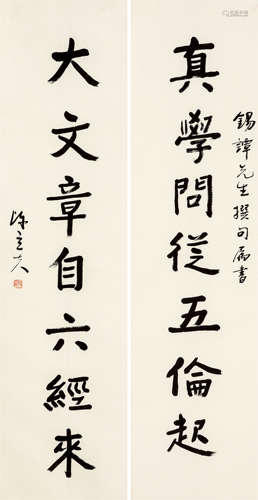 真學問從五倫起
錫諱先生撰句屬書
大文章自六經來
陳立夫